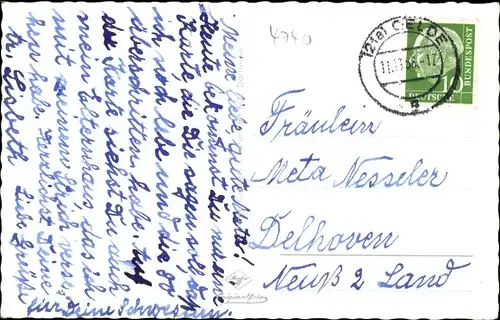 4740
Meine liebe, gute Meta!
Heute bekommst Du nur eine
Karte, die Dir sagen soll, daß
ich noch lebe und die 80
überschritten habe. Auf
der Karte siehst Du auch
mein Elternhaus, das ich
mit meinem Strich vers.
hen hab. Herzlichst Deine
Lisbeth Liebe Grüße
für Deine Schwestern.
(21a) OELDE
11.11.
DEUTSCHE
BUNDESPOST
Fräulein
Meta Nesseler
Delhoven
Neuß 2 Land